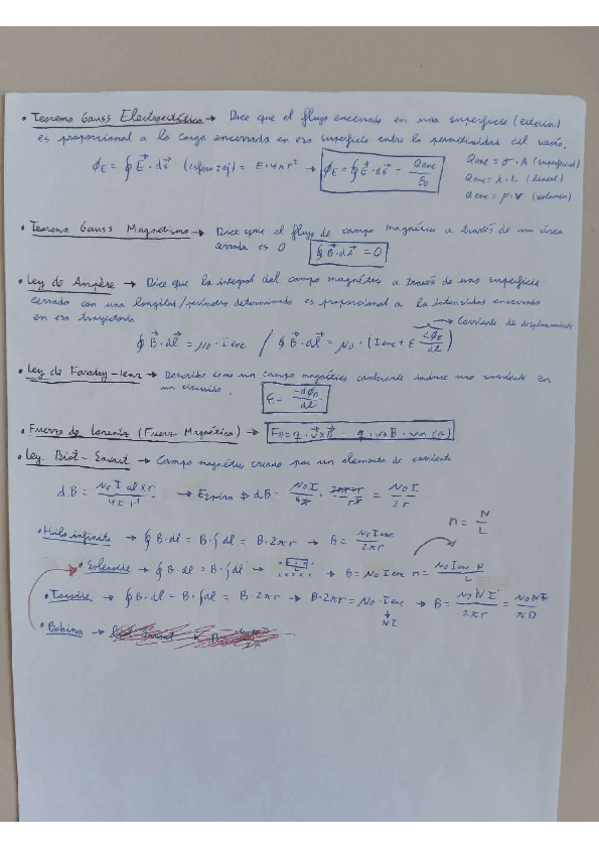 • Teorema Gauss Electrostática → Dice que el flujo encerrado en una superficie (exterior)
es proporcional a la carga encerrada en esa superficie entre la permitividad del vacío.
ϕE = ∮ E⃗ · ds⃗ (esfera: ej) = E·4πr² → ϕE = ∮ E⃗ · ds⃗ = Qenc / ε0
Qenc = σ · A (superficial)
Qenc = λ · L (lineal)
Qenc = ρ · V (volumen)
• Teorema Gauss Magnetismo → Dice que el flujo de campo magnético a través de un área
cerrada es 0 ∮ B⃗ · dl⃗ = 0
• Ley de Ampère → Dice que la integral del campo magnético a través de una superficie
cerrado con una longitud/perímetro determinado es proporcional a la intensidad encerrada
en esa trayectoria
→ Corriente de desplazamiento
∮ B⃗ · dl⃗ = μ0 · Ienc / ∮ B⃗ · dl⃗ = μ0 · (Ienc + ε dϕE / dt)
• Ley de Faraday-Lenz → Describe como un campo magnético cambiante induce una corriente en
un circuito. ε = -dϕB / dt
• Fuerza de Lorentz (Fuerza Magnética) → FB = q · v⃗ x B⃗ = q · v · B · sen (α)
• Ley Biot-Savart → Campo magnético creado por un elemento de corriente
dB = μ0 I dl x r / 4π r² → Espira → dB = μ0 I / 4π · 2πr / r² = μ0 I / 2r
n = N / L
• Hilo infinito → ∮ B · dl = B · ∫ dl = B · 2πr → B = μ0 Ienc / 2πr
• Solenoide → ∮ B · dl = B · ∫ dl → B = μ0 Ienc n = μ0 Ienc N / L
• Toroide → ∮ B · dl = B · ∫ dl = B · 2πr → B · 2πr = μ0 · Ienc → B = μ0 N I / 2πr = μ0 N I / πD
↓
NI
• Bobina →